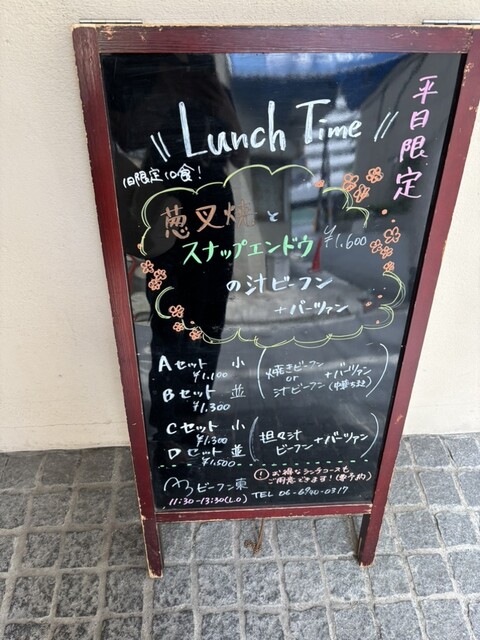 Lunch Time
平日限定
1日限定10食!
葱叉焼と
スナップエンドウ ¥1,600
の汁ビーフン
+バーツァン
Aセット 小 ¥1,100
Bセット 並 ¥1,300
(焼きビーフン or 汁ビーフン +バーツァン(中華ちまき))
Cセット 小 ¥1,300
Dセット 並 ¥1,500
(担々汁ビーフン +バーツァン)
ビーフン東
11:30-13:30(L.O)
! お得なランチコースも
ご用意できます!(要予約)
TEL 06-6940-0317